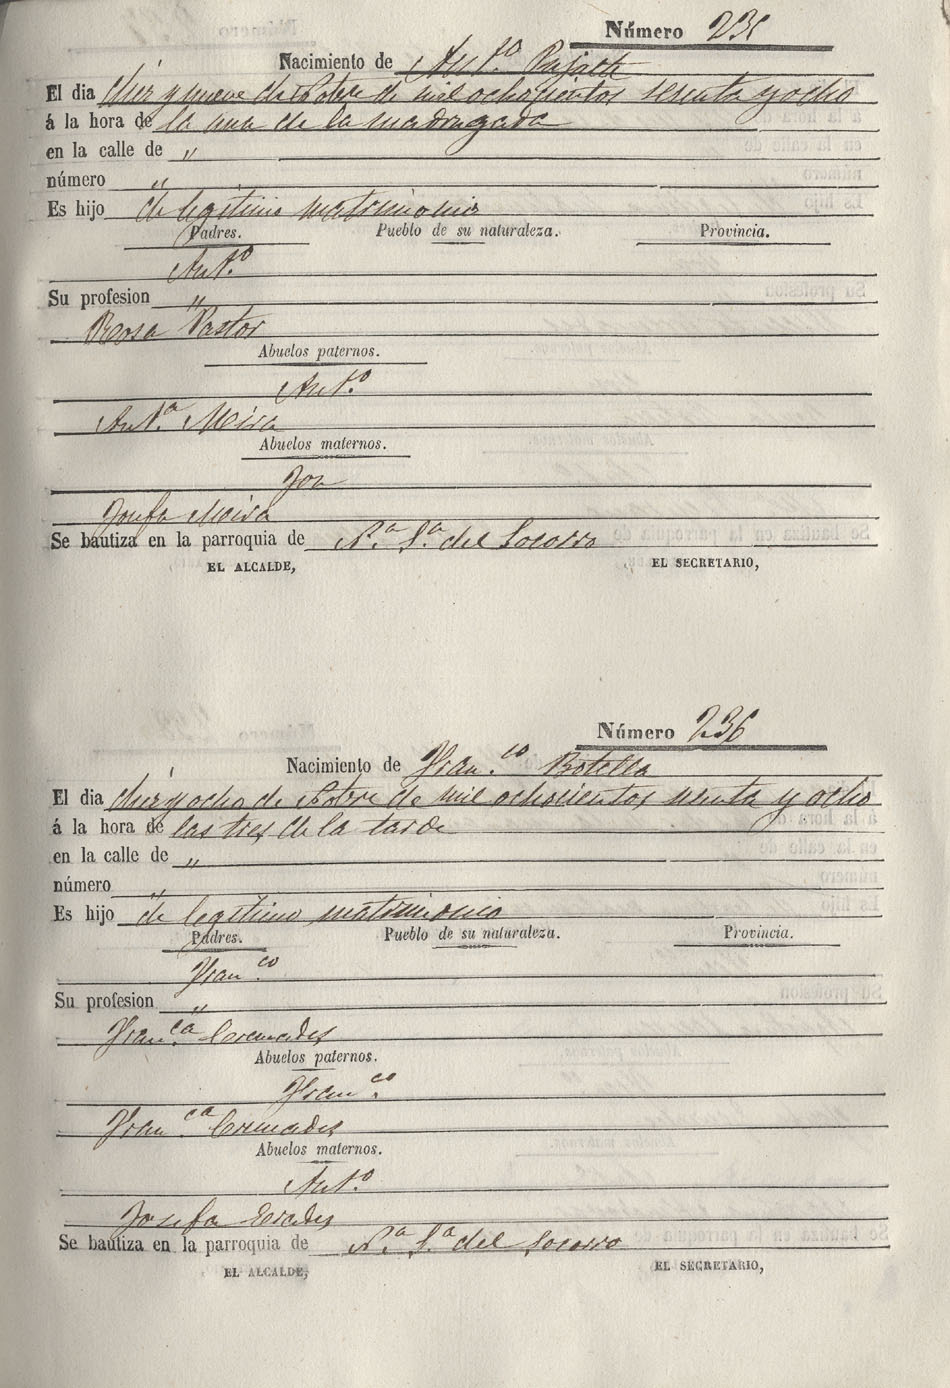 Número 235
Nacimiento de Ant.º
El dia diez y nueve de 8bre de mil ochocientos sesenta y ocho
á la hora de la una de la madrugada
en la calle de "
número "
Es hijo de legitimo matrimonio
Padres. Pueblo de su naturaleza. Provincia.
Ant.º
Su profesion "
Rosa Pastor
Abuelos paternos.
Ant.º
Ant.ª Meira
Abuelos maternos.
Jose
Josefa Meira
Se bautiza en la parroquia de N.ª S.ª del Socorro
EL ALCALDE, EL SECRETARIO,
Número 236
Nacimiento de Fran.co Botella
El dia diez y ocho de de mil ochocientos sesenta y ocho
á la hora de las tres de la tarde
en la calle de "
número "
Es hijo de legitimo matrimonio
Padres. Pueblo de su naturaleza. Provincia.
Fran.co
Su profesion "
Fran.ca Cremades
Abuelos paternos.
Fran.co
Fran.ca Cremades
Abuelos maternos.
Ant.º
Josefa
Se bautiza en la parroquia de N.ª S.ª del Socorro
EL ALCALDE, EL SECRETARIO,